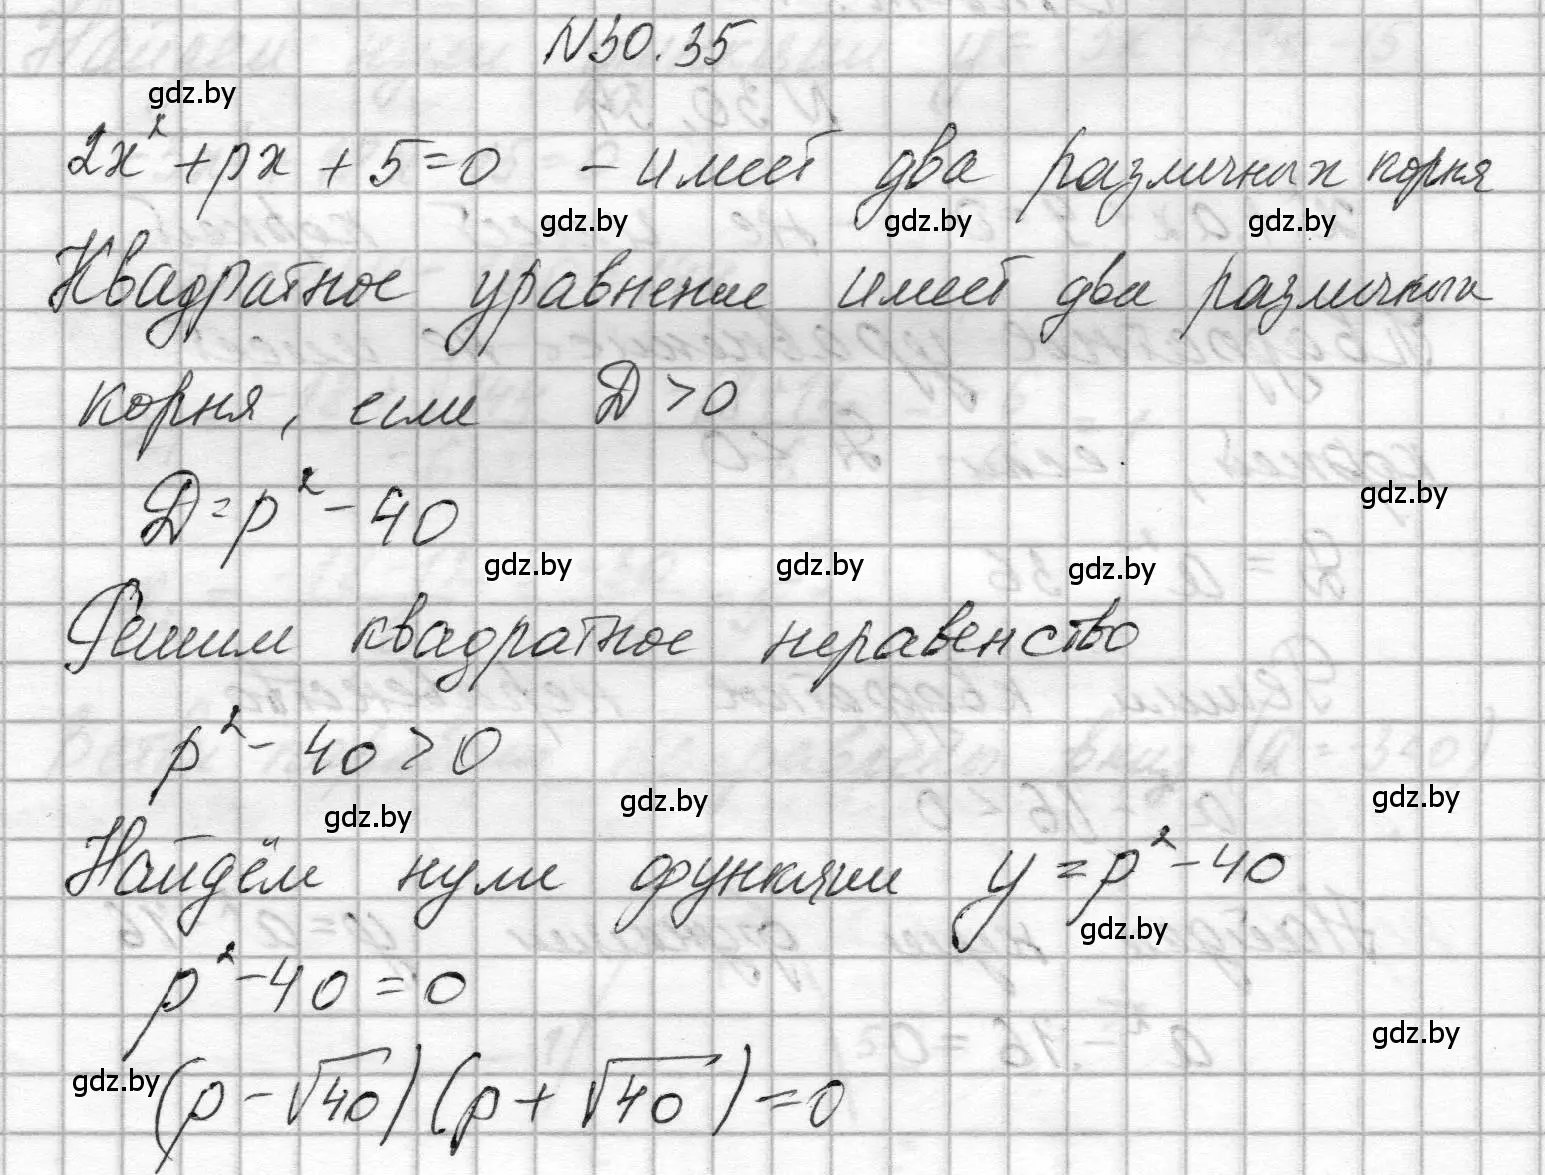 N30.35
gdz.by
2x² + px + 5 = 0 - имеет два различных корня
gdz.by gdz.by gdz.by
Квадратное уравнение имеет два различных
корня, если D > 0
gdz.by
D = p² - 40
gdz.by gdz.by gdz.by
Решим квадратное неравенство
p² - 40 > 0
gdz.by gdz.by gdz.by
Найдём нули функции y = p² - 40
gdz.by
p² - 40 = 0
gdz.by
gdz.by
(p - √40)(p + √40) = 0